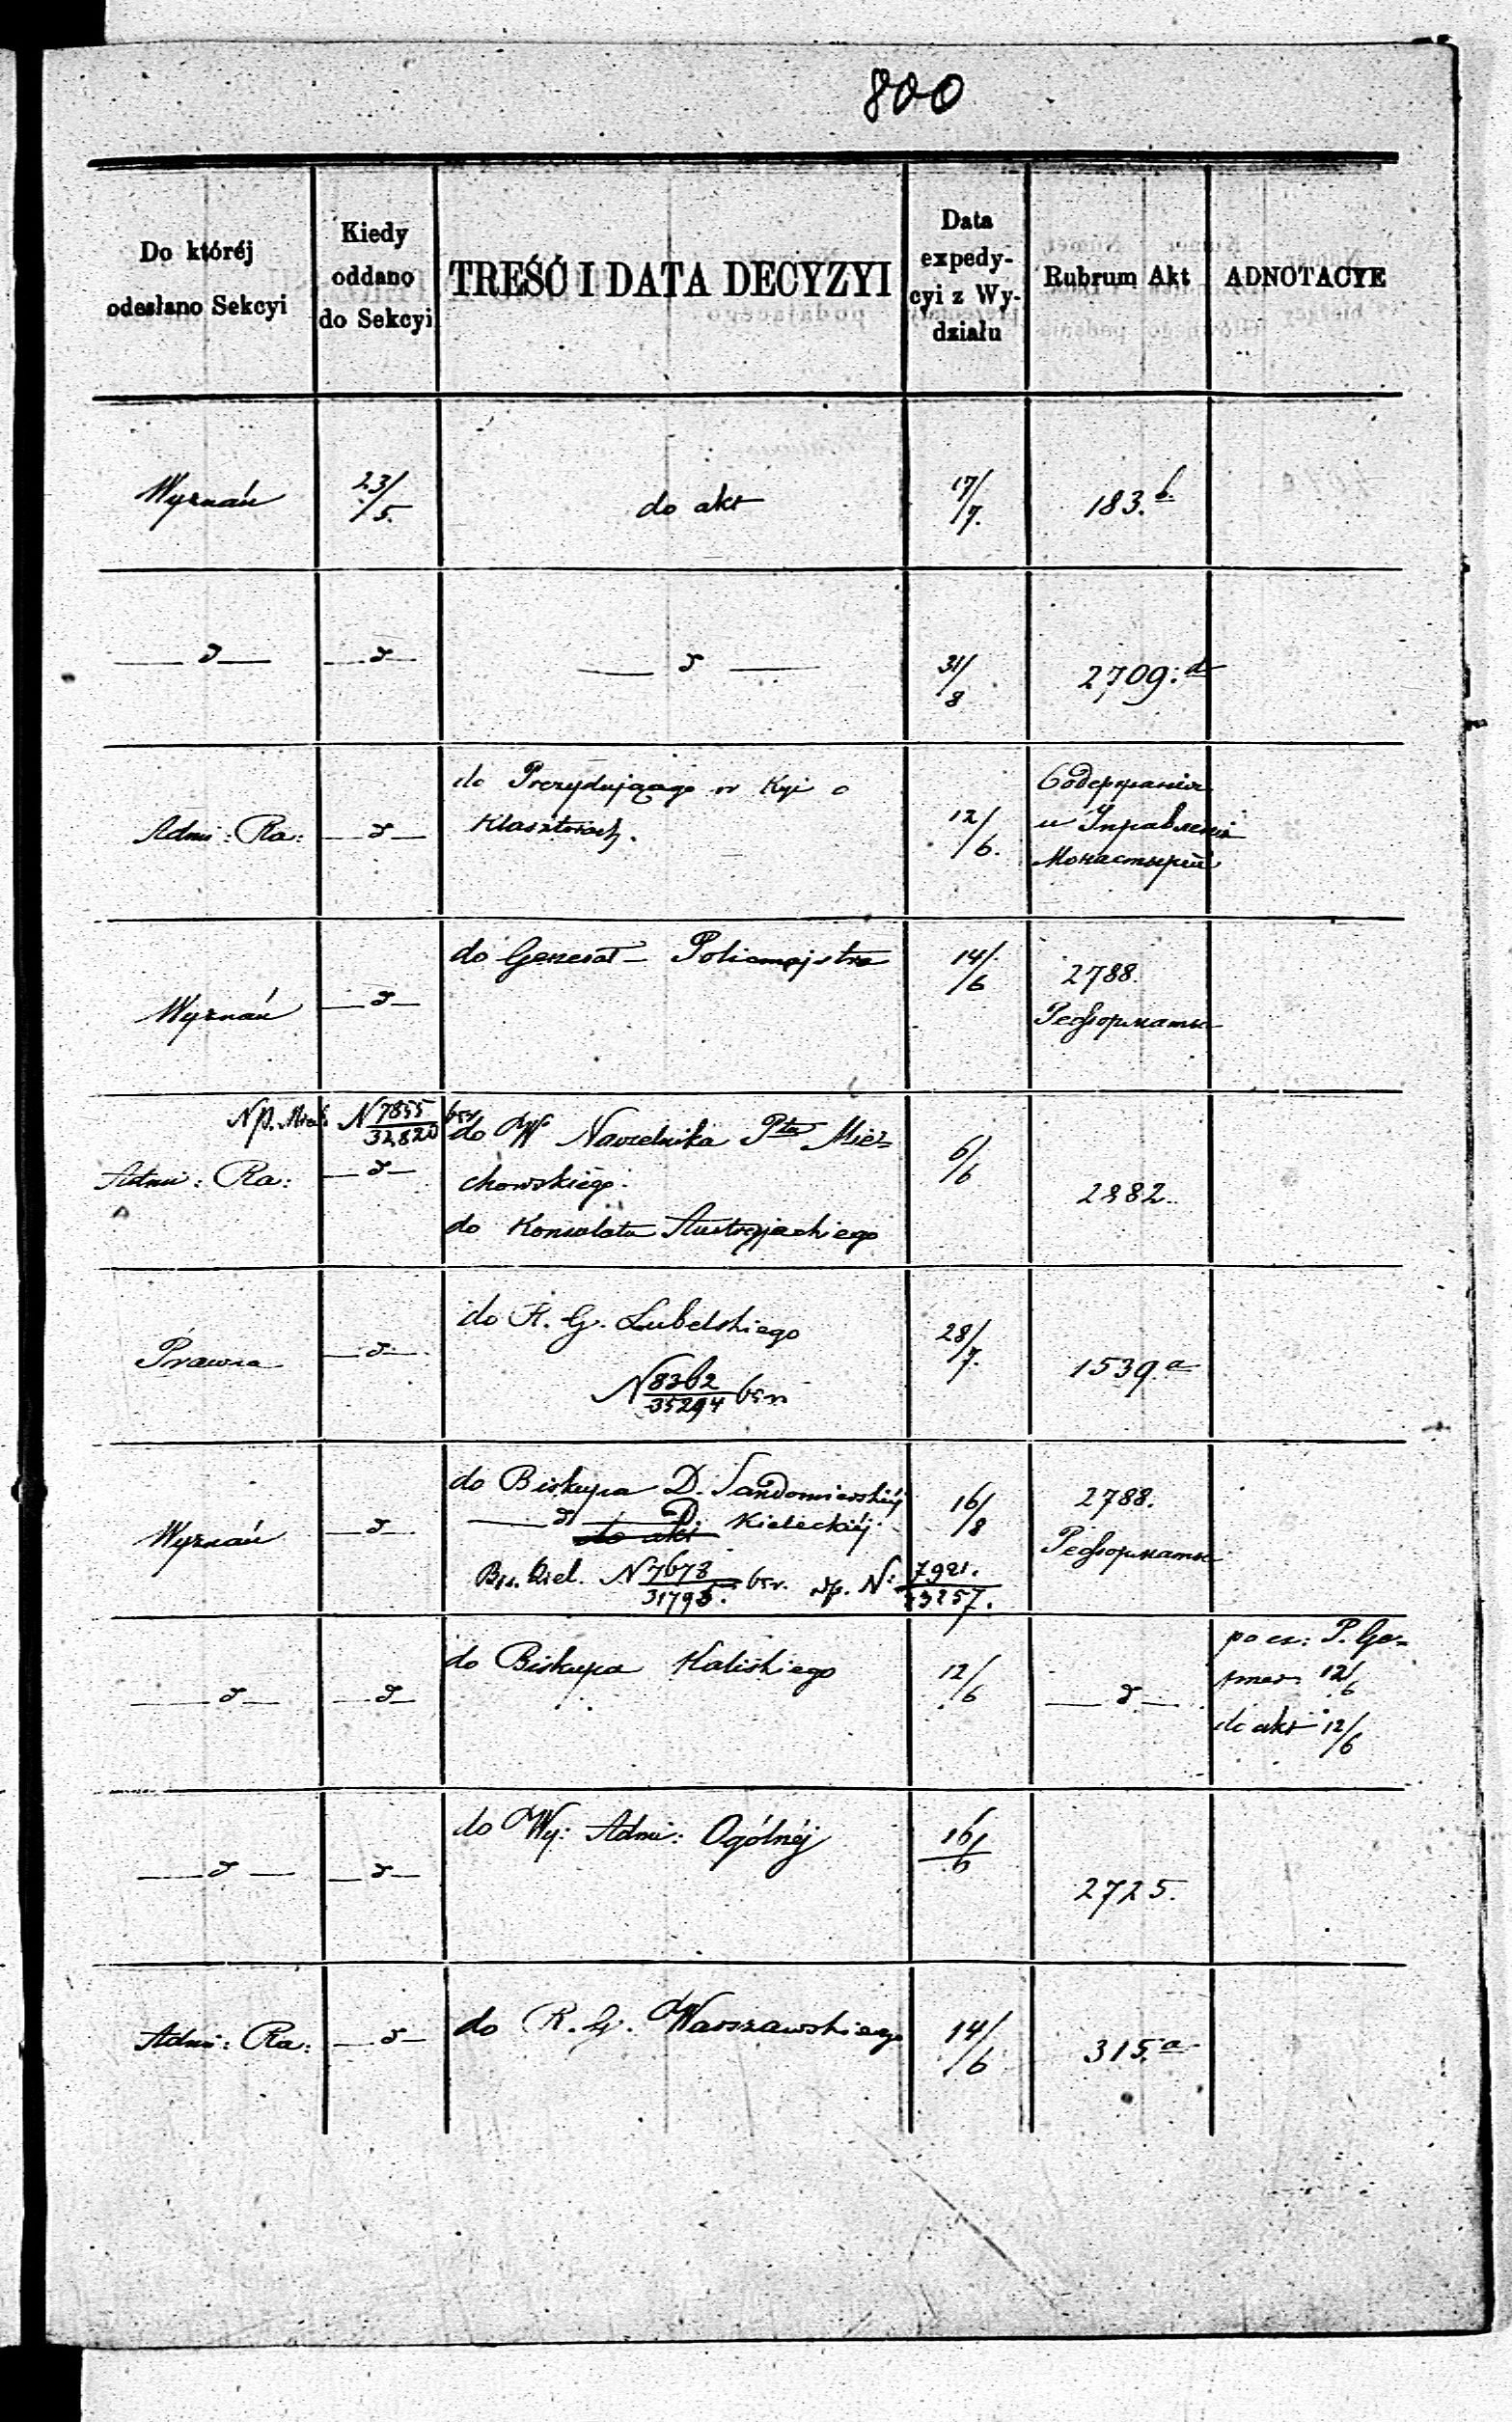 800
Do któréj
odesłano Sekcyi
Kiedy
oddano
do Sekcyi
TREŚĆ I DATA DECYZYI
Data
expedy-
cyi z Wy-
działu
Rubrum Akt
ADNOTACYE
Wyznań
23/5.
do akt
17/7.
183.b.
— d —
— d —
— d —
31/8
2709.d
Admi: Ra:
— d —
do Prezydującego w Kyi o
Klasztorach.
12/6.
Содержанія
и Управленія
Монастырей
Wyznań
— d —
do Generał- Policmajstra
14/6
2788.
Реформаты
Np. N 7855/32820 bśr.
Admi: Ra:
— d —
do W Naczelnika Ptu Mie-
chowskiégo.
do Konsulatu Austryjackiego
6/6
2882.
Prawna
— d —
do R. G. Lubelskiego
N 8362/35294 bśr.
28/7.
1539.a
Wyznań
— d —
do Biskupa D. Sandomierskiéj
— d — D. Kieleckiéj
do akt
Bis. Kiel. N 7673/31795. bśr. Np. N: 7921./33257.
16/8
2788.
Реформаты
— d —
— d —
do Biskupa Kaliskiego
12/6
— d —
po cz: P. Ge-
12/6
do akt 12/6
— d —
— d —
do Wy: Admi: Ogólnéj
16/6
2725.
Admi: Ra:
— d —
do R. G. Warszawskiego
14/6
315.a